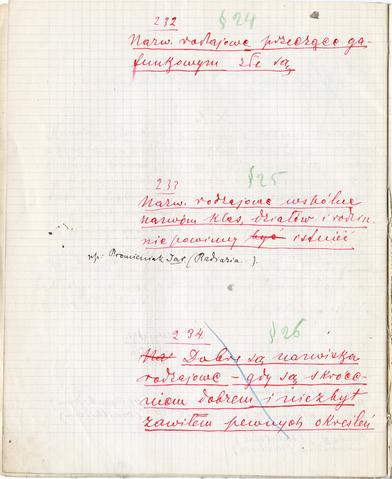 232 § 24
Nazw. rodzajowe przeczące ga-
funkowym złe są
233 § 25
Nazw. rodzajowe wspólne
nazwom klas, działów i rodzin
nie powinny być istnieć
np: Promieniak Jas (Radiaria.).
234. § 26
Na Dobre są nazwiska
rodzajowe – gdy są skróce-
niem dobrem i niezbyt
zawiłem pewnych określeń